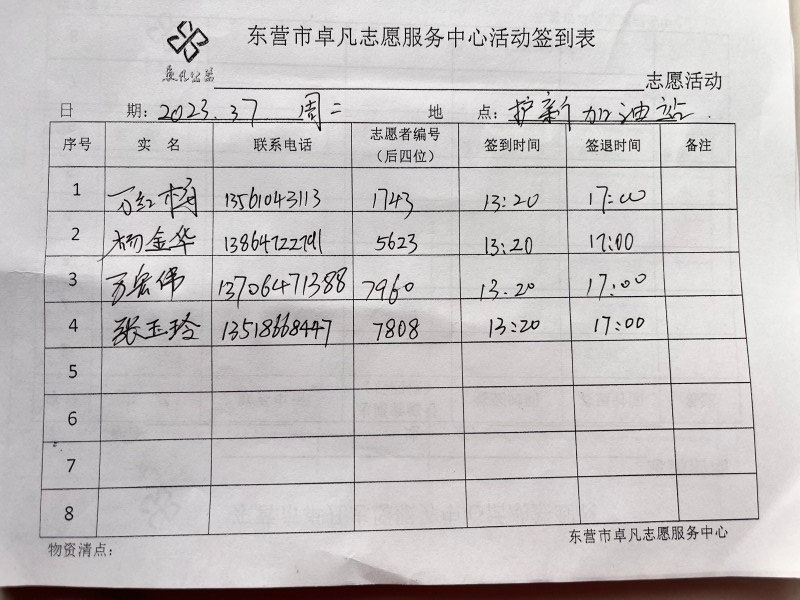 东营市卓凡志愿服务中心活动签到表
卓凡公益
志愿活动
日 期：2023.3.7 周二 地 点：护新加油站
序号 实 名 联系电话 志愿者编号（后四位） 签到时间 签退时间 备注
1 万红梅 13561043113 1743 13:20 17:00
2 杨金华 13864722791 5623 13:20 17:00
3 万宏伟 13706471388 7960 13.20 17:00
4 张玉玲 13518668447 7808 13:20 17:00
5
6
7
8
物资清点： 东营市卓凡志愿服务中心